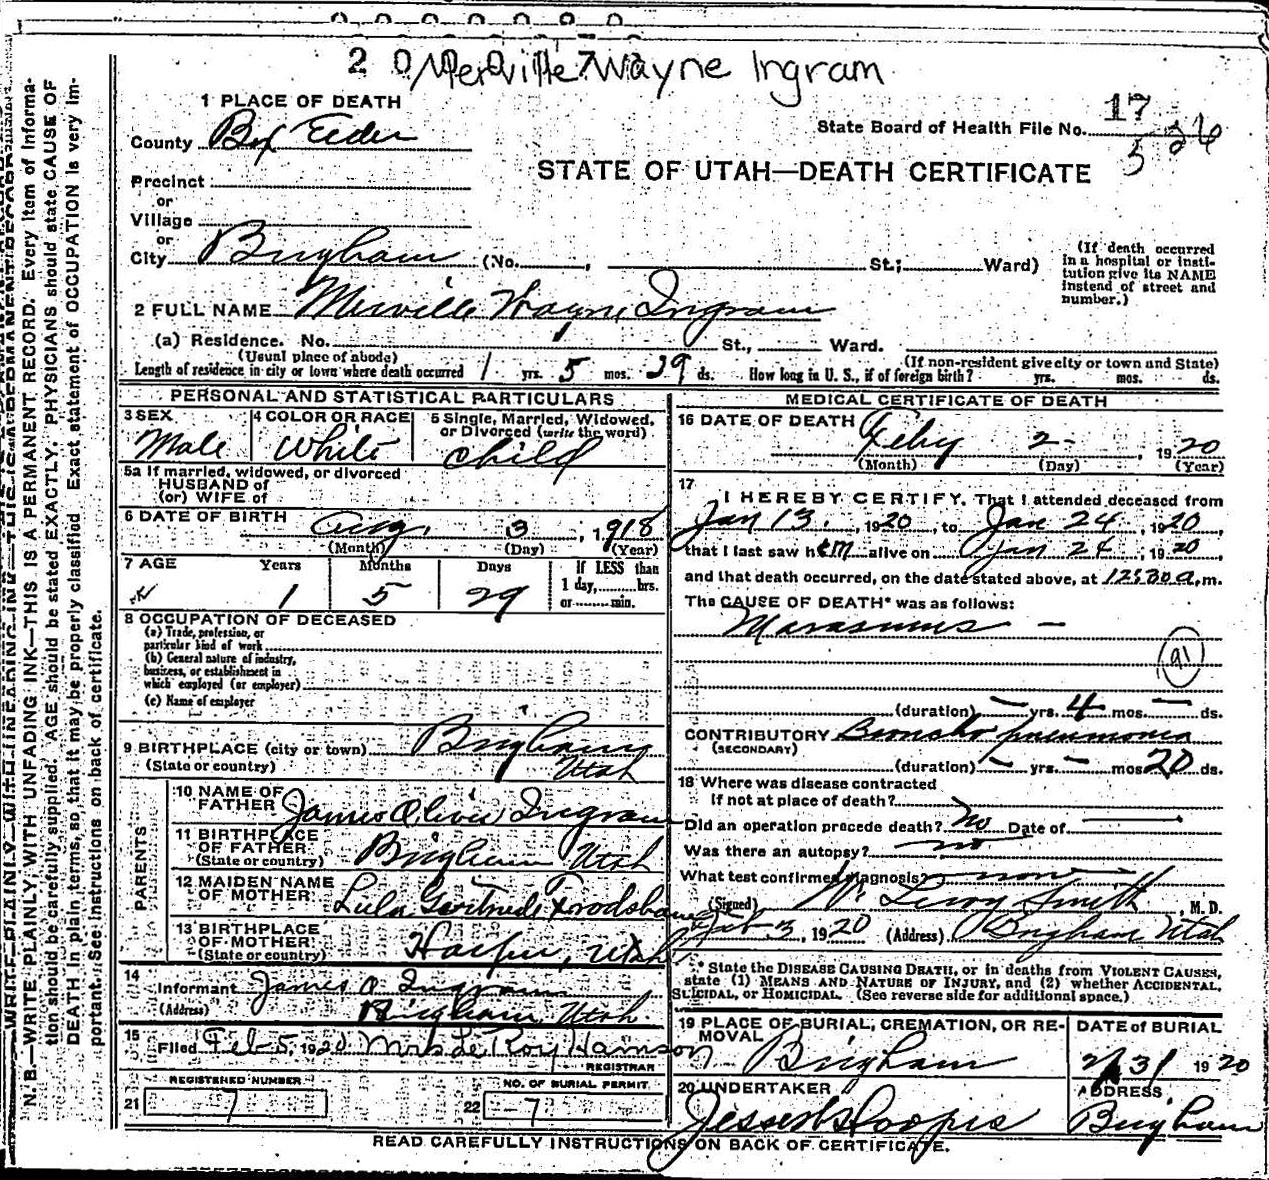 2 0 7
Merville Wayne Ingram
1 PLACE OF DEATH
County Box Elder
State Board of Health File No. 17
5 26
STATE OF UTAH—DEATH CERTIFICATE
Precinct
or
Village
or
City Brigham (No. , St.; Ward)
(If death occurred in a hospital or insti-
tution give its NAME instead of street and number.)
2 FULL NAME Merville Wayne Ingram
(a) Residence. No. St., Ward.
(Usual place of abode) (If non-resident give city or town and State)
Length of residence in city or town where death occurred 1 yrs. 5 mos. 29 ds. How long in U. S., if of foreign birth? yrs. mos. ds.
PERSONAL AND STATISTICAL PARTICULARS
3 SEX 4 COLOR OR RACE 5 Single, Married, Widowed, or Divorced (write the word)
Male White Child
5a If married, widowed, or divorced
HUSBAND of
(or) WIFE of
6 DATE OF BIRTH Aug. 3, 1918
(Month) (Day) (Year)
7 AGE Years Months Days If LESS than
1 day, hrs.
or min.
1 5 29
8 OCCUPATION OF DECEASED
(a) Trade, profession, or
particular kind of work
(b) General nature of industry,
business, or establishment in
which employed (or employer)
(c) Name of employer
9 BIRTHPLACE (city or town) Brigham
(State or country) Utah
PARENTS
10 NAME OF
FATHER James Oliver Ingram
11 BIRTHPLACE
OF FATHER
(State or country) Brigham Utah
12 MAIDEN NAME
OF MOTHER Lula Gertrude Frodsham
13 BIRTHPLACE
OF MOTHER
(State or country) Harper, Utah
14
Informant James O. Ingram
(Address) Brigham, Utah.
15
Filed Feb 5, 1920 Mrs Le Roy Hamson
REGISTRAR
REGISTERED NUMBER NO. OF BURIAL PERMIT
21 7 22 7
MEDICAL CERTIFICATE OF DEATH
16 DATE OF DEATH Feby 2, 1920
(Month) (Day) (Year)
17
I HEREBY CERTIFY, That I attended deceased from
Jan 13, 1920, to Jan 24, 1920,
that I last saw him alive on Jan 24, 1920,
and that death occurred, on the date stated above, at 12:30 a.m.
The CAUSE OF DEATH* was as follows:
Marasmus —
91
(duration) — yrs. 4 mos. — ds.
CONTRIBUTORY Broncho pneumonia
(SECONDARY)
(duration) — yrs. — mos. 20 ds.
18 Where was disease contracted
If not at place of death?
Did an operation precede death? No Date of
Was there an autopsy? no
What test confirmed diagnosis? none
(Signed) W. Leroy Smith, M. D.
Feb 3, 1920 (Address) Brigham Utah
* State the DISEASE CAUSING DEATH, or in deaths from VIOLENT CAUSES,
state (1) MEANS AND NATURE OF INJURY, and (2) whether ACCIDENTAL,
SUICIDAL, or HOMICIDAL. (See reverse side for additional space.)
19 PLACE OF BURIAL, CREMATION, OR RE-
MOVAL Brigham
DATE of BURIAL
2/3/ 1920
20 UNDERTAKER
ADDRESS
Brigham
READ CAREFULLY INSTRUCTIONS ON BACK OF CERTIFICATE.
N. B.—WRITE PLAINLY, WITH UNFADING INK—THIS IS A PERMANENT RECORD. Every item of informa-
tion should be carefully supplied. AGE should be stated EXACTLY. PHYSICIANS should state CAUSE OF
DEATH in plain terms, so that it may be properly classified. Exact statement of OCCUPATION is very im-
portant. See instructions on back of certificate.